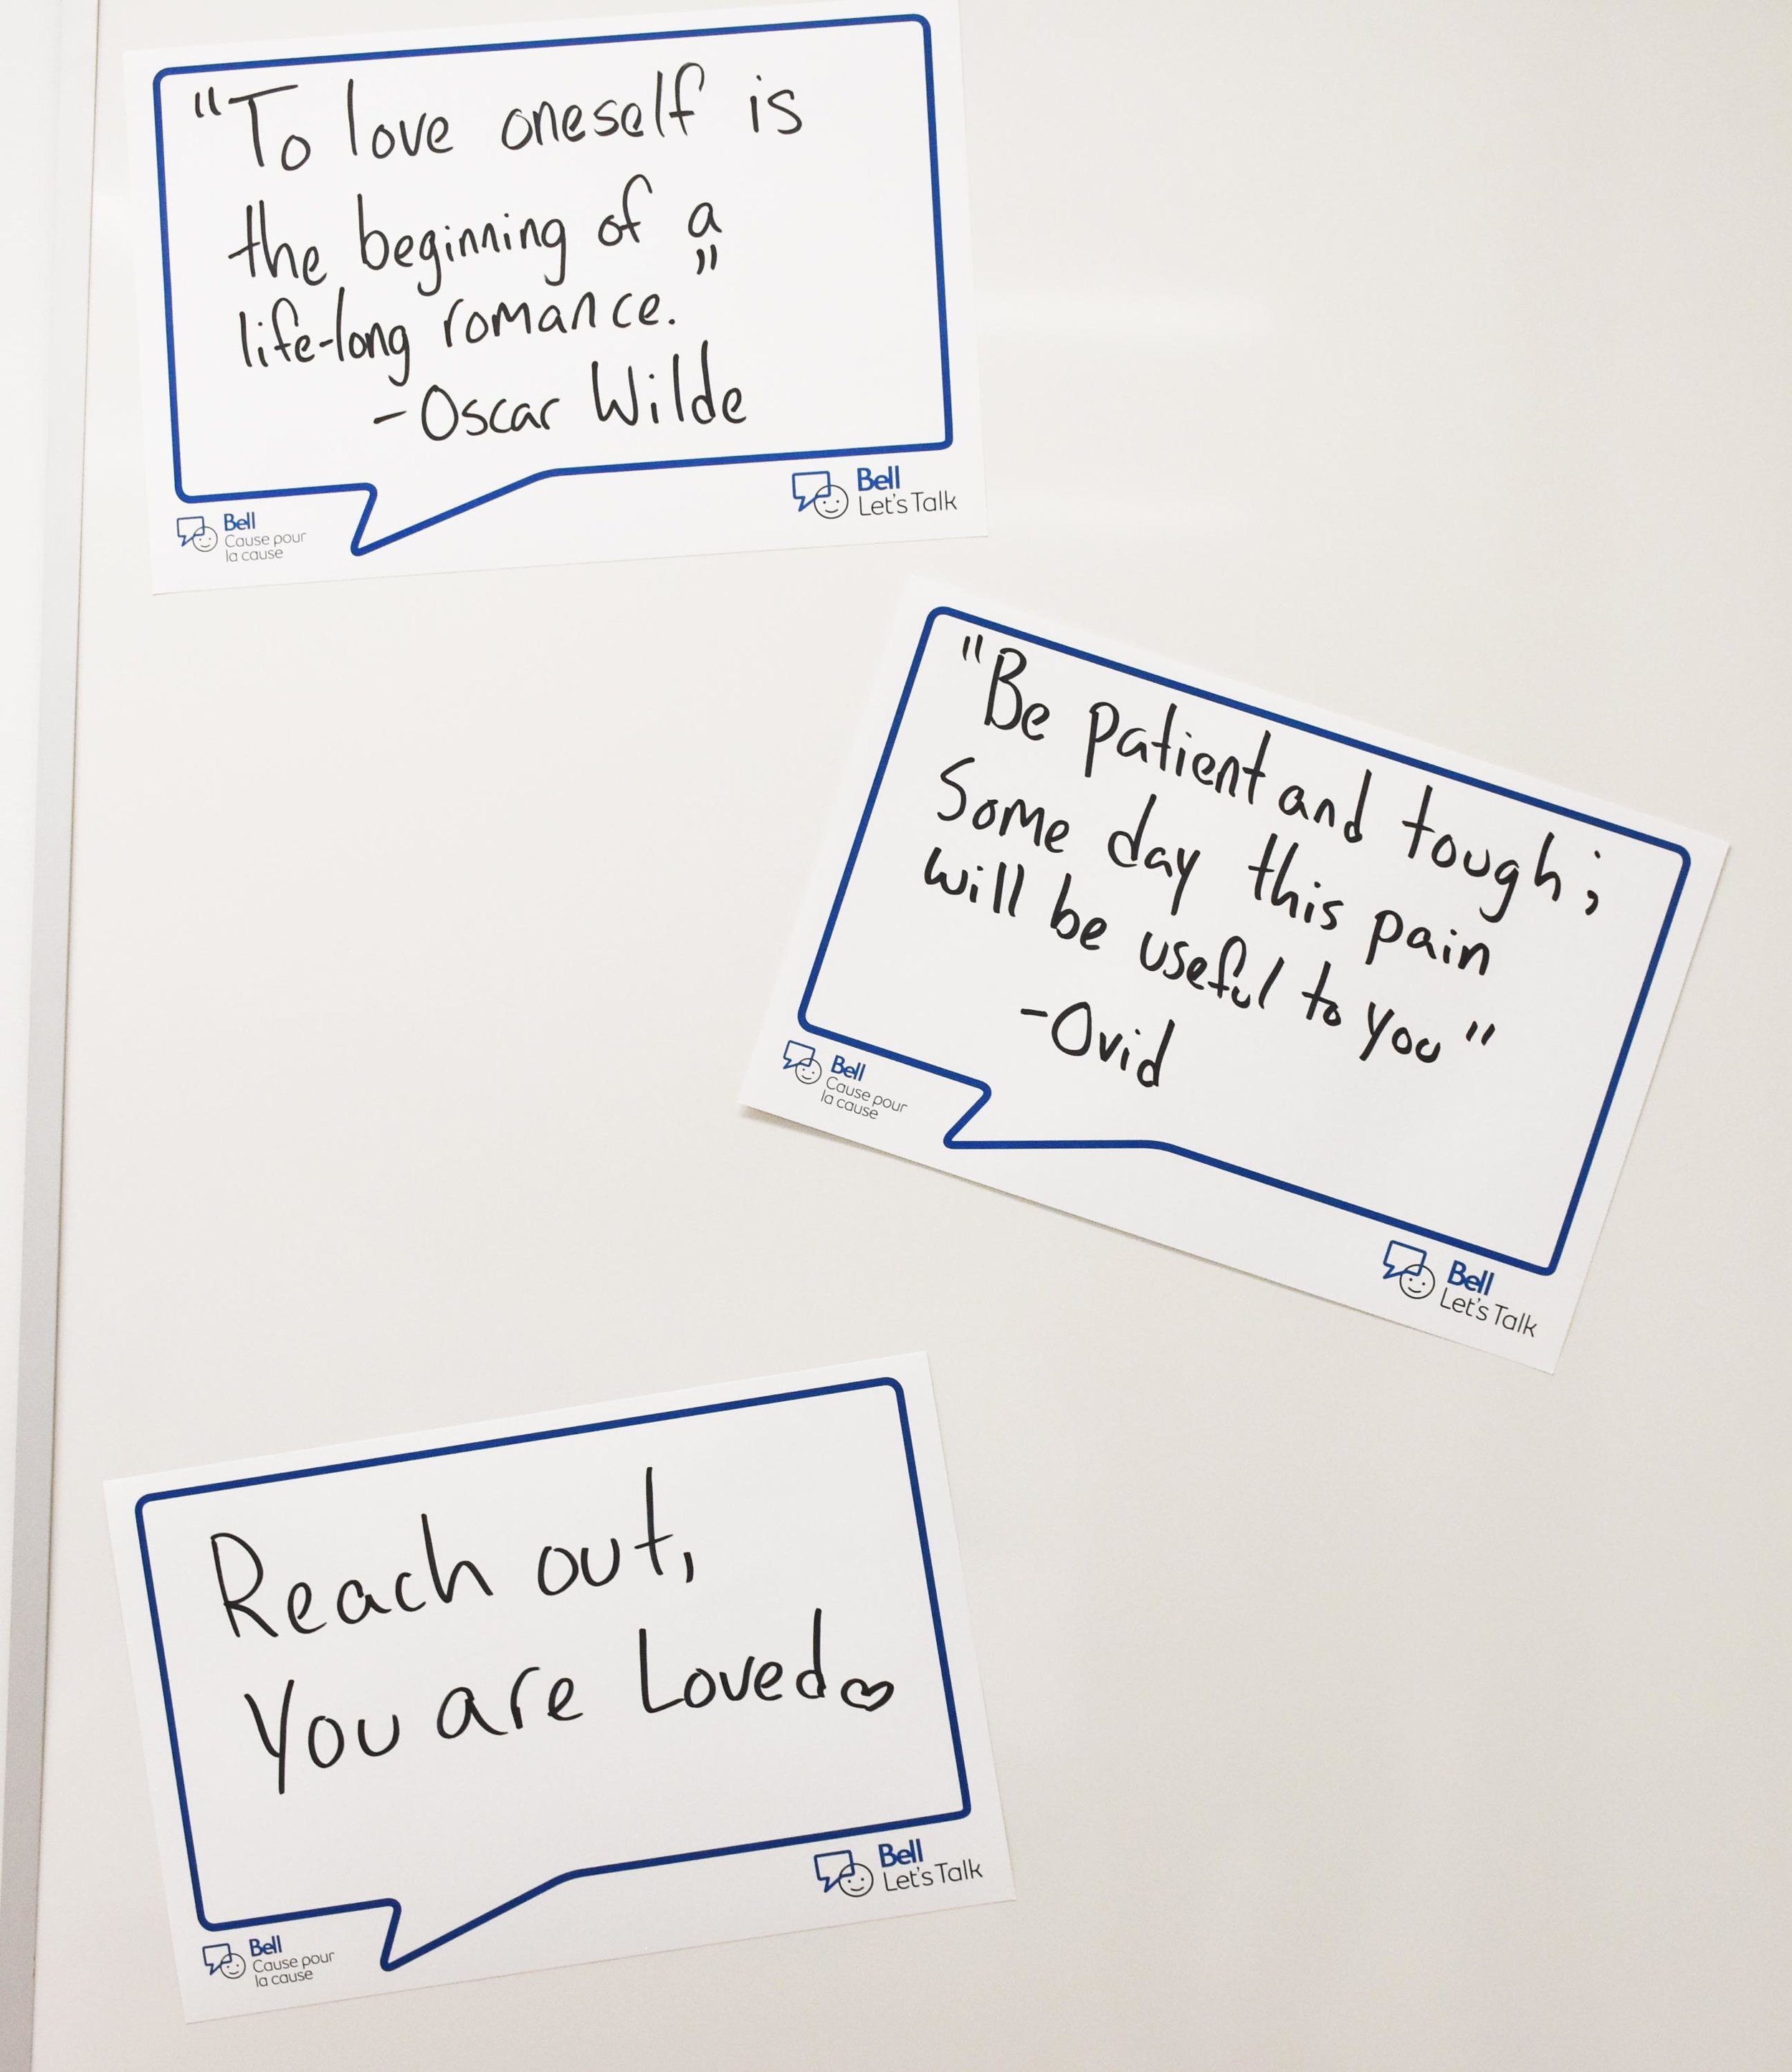 "To love oneself is
the beginning of a
life-long romance."
-Oscar Wilde
Bell
Cause pour
la cause
Bell
Let's Talk
"Be patient and tough;
Some day this pain
will be useful to you"
-Ovid
Bell
Cause pour
la cause
Bell
Let's Talk
Reach out,
You are Loved♡
Bell
Cause pour
la cause
Bell
Let's Talk